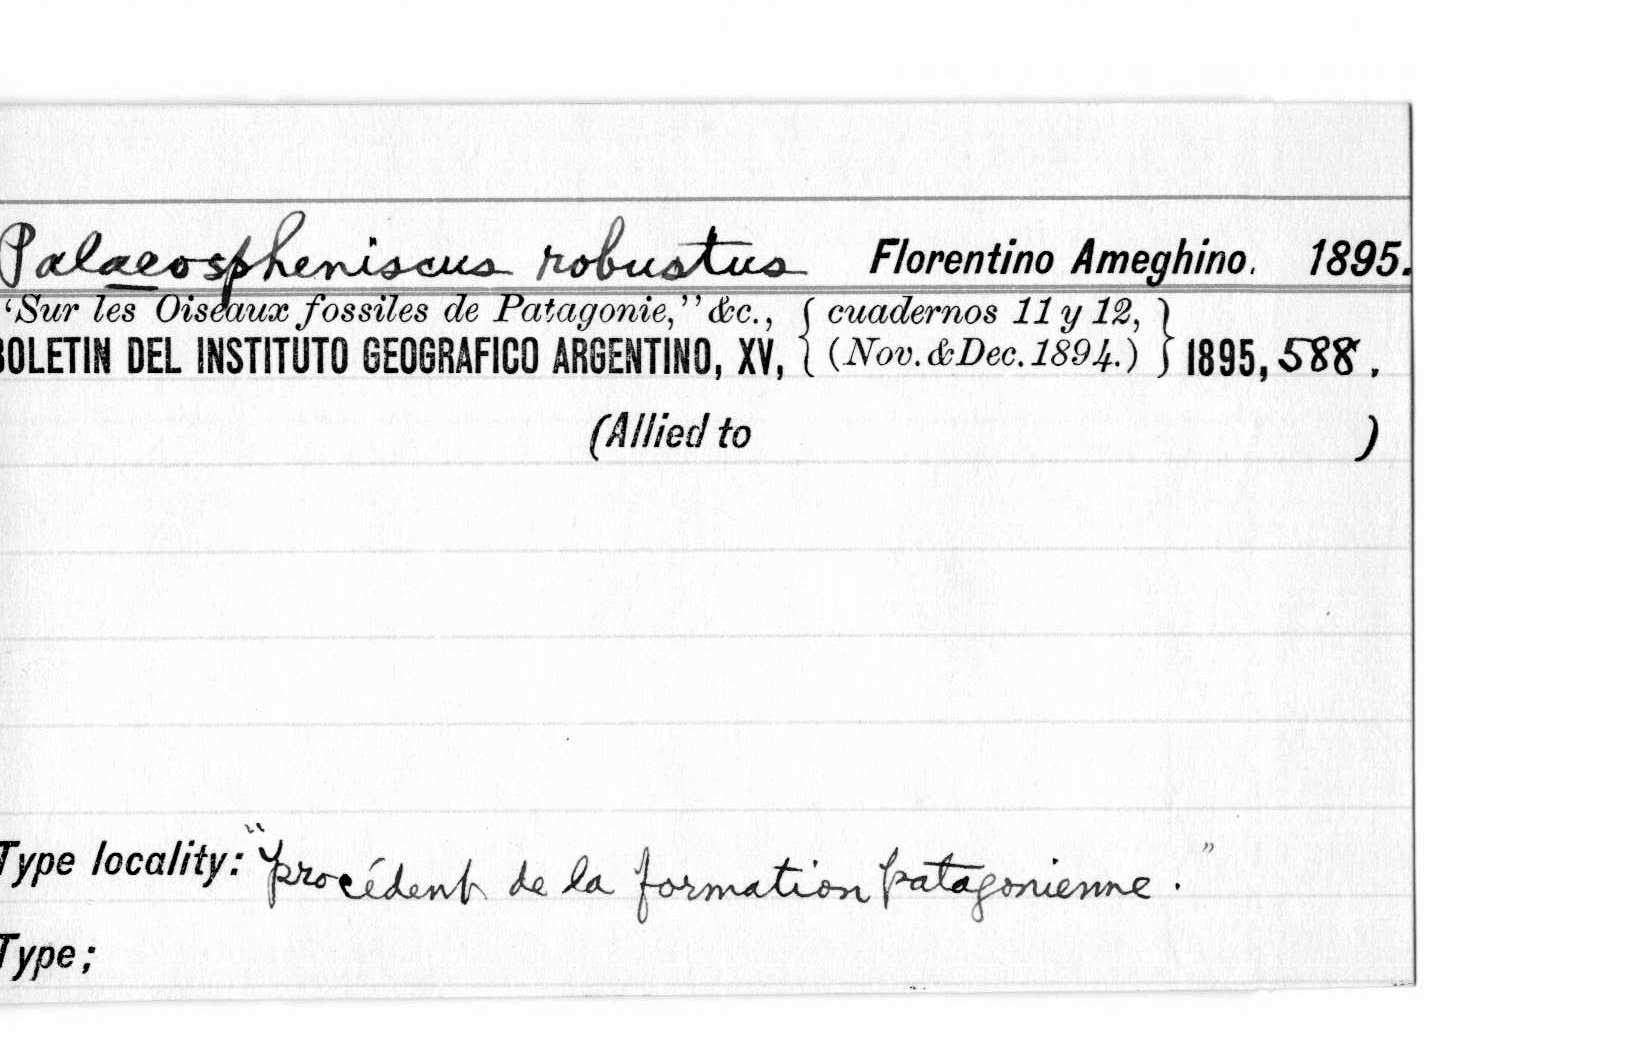 Palaeospheniscus robustus Florentino Ameghino. 1895.
‘Sur les Oiseaux fossiles de Patagonie,’’ &c., { cuadernos 11 y 12, }
BOLETIN DEL INSTITUTO GEOGRAFICO ARGENTINO, XV, { (Nov. & Dec. 1894.) } 1895, 588.
(Allied to )
Type locality: "procédent de la formation patagonienne."
Type;